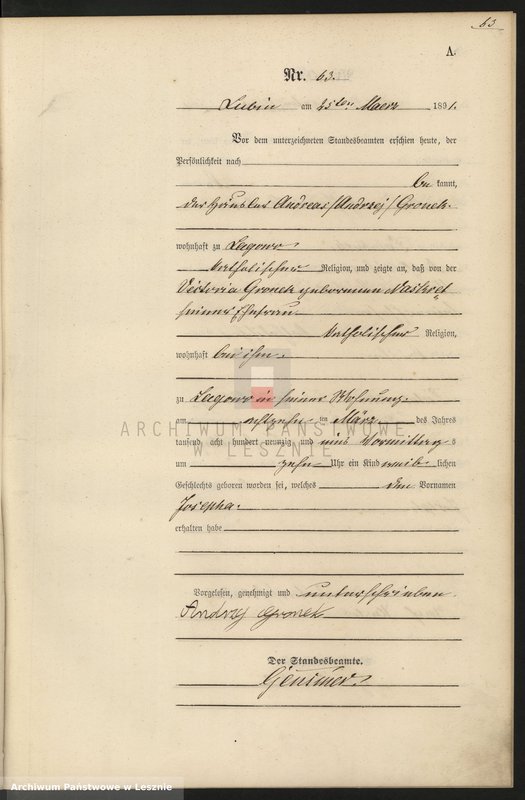 63
A.
Nr. 63.
Lubin am 25ten Maerz 1891.
Vor dem unterzeichneten Standesbeamten erschien heute, der
Persönlichkeit nach
be kannt,
der Häusler Andreas /Andrzej/ Gronek.
wohnhaft zu Lagowo
katholischer Religion, und zeigte an, daß von der
Victoria Gronek geborenen
seiner Ehefrau
katholischer Religion,
wohnhaft bei ihm
zu Lagowo in seiner Wohnung
am achtzehn ten März des Jahres
tausend acht hundert neunzig und eins Vormittag s
um zehn Uhr ein Kind weib lichen
Geschlechts geboren worden sei, welches den Vornamen
Josepha.
erhalten habe
Vorgelesen, genehmigt und unterschrieben
Andrzej Gronek
Der Standesbeamte.
ARCHIWUM PAŃSTWOWE
W LESZNIE
Archiwum Państwowe w Lesznie